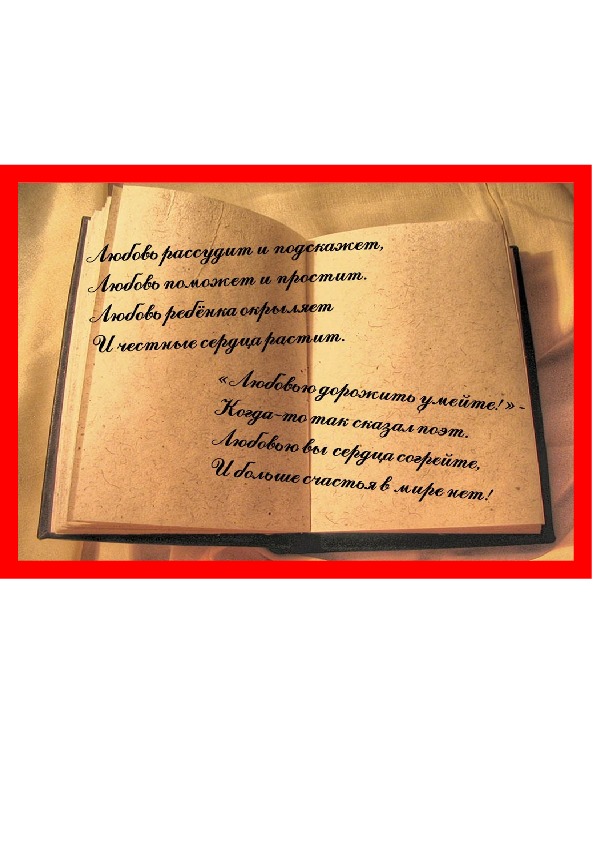 Любовь рассудит и подскажет,
Любовь поможет и простит.
Любовь ребёнка окрыляет
И честные сердца растит.
«Любовью дорожить умейте!» -
Когда-то так сказал поэт.
Любовью вы сердца согрейте,
И больше счастья в мире нет!